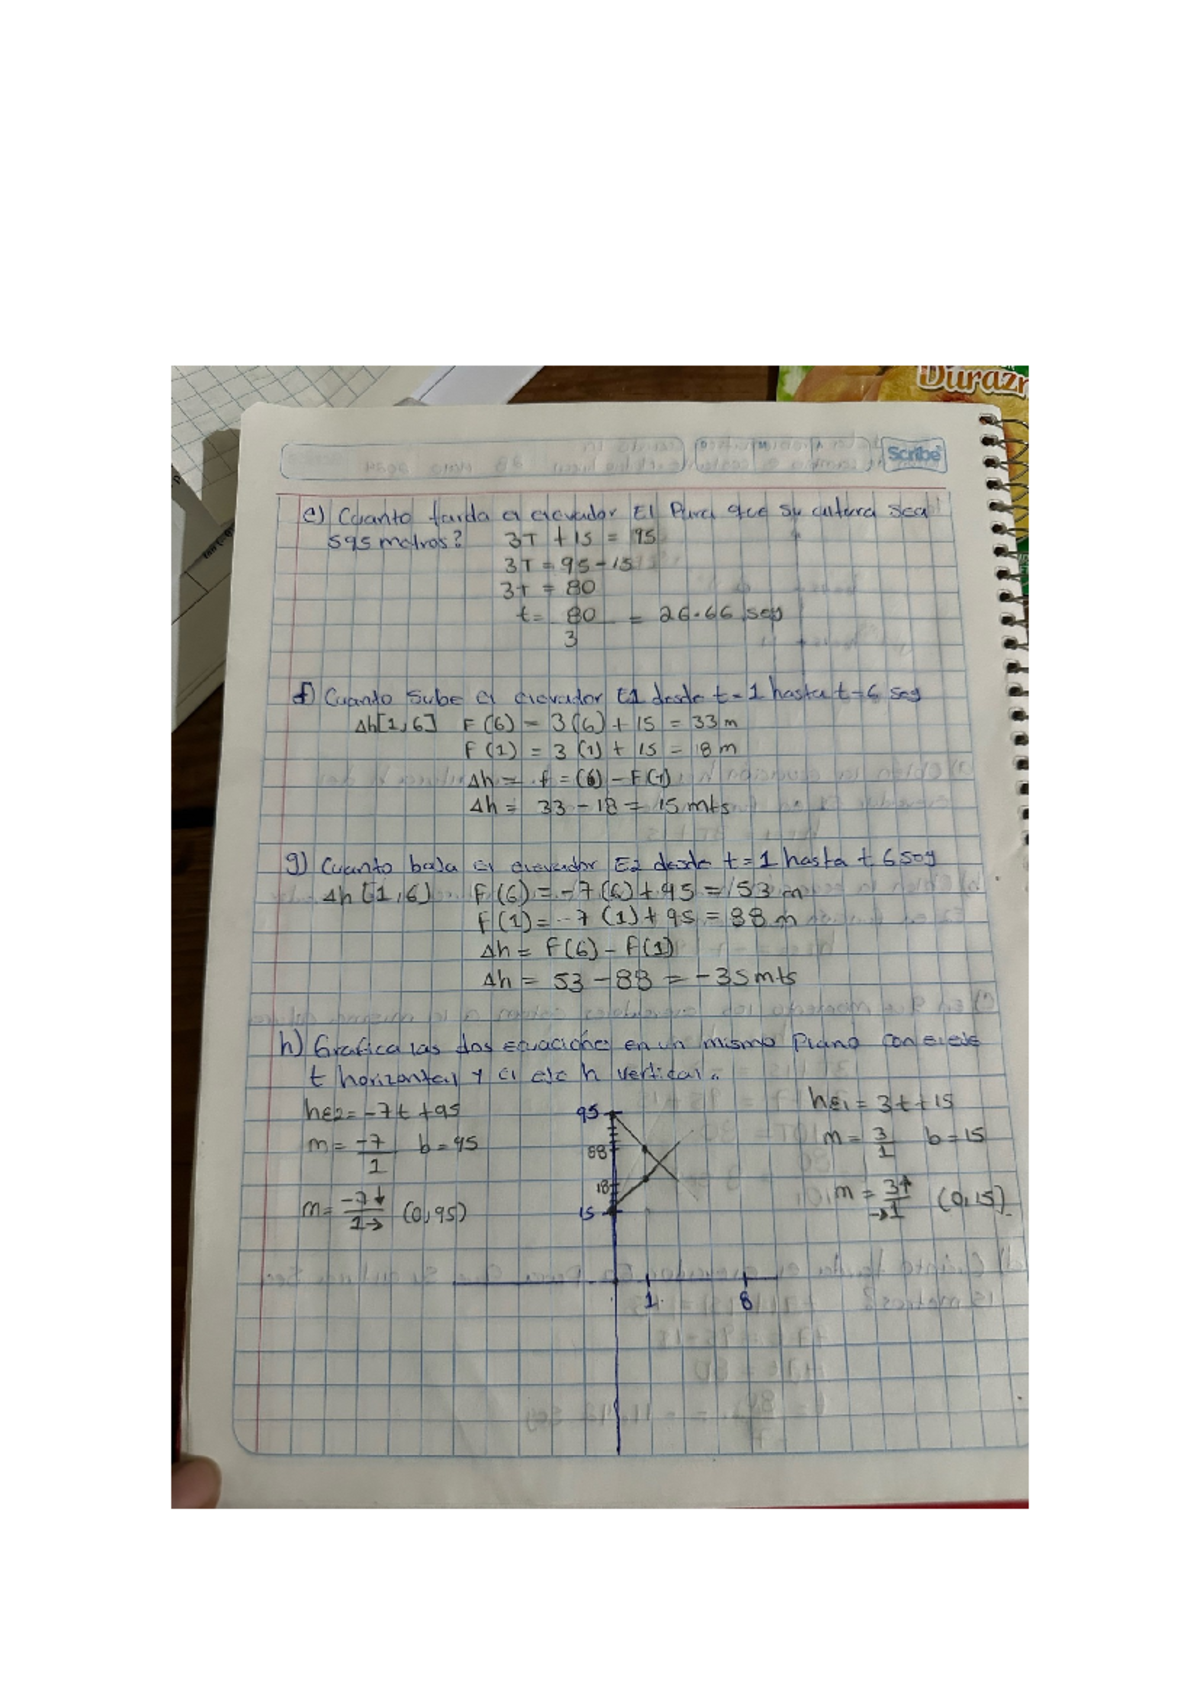 Durazn
Scribe
e) Cuanto tarda el elevador E1 Para que su altura sea
595 metros? 3T + 15 = 95
3T = 95-15
3t = 80
t= 80 = 26.66 seg
3
f) Cuanto Sube el elevador E1 desde t=1 hasta t=6 seg
Δh[1,6] F(6) = 3(6) + 15 = 33 m
F(1) = 3(1) + 15 = 18 m
Δh = f = (6) - F(1)
Δh = 33 - 18 = 15 mts
g) Cuanto baja el elevador E2 desde t=1 hasta t 6 seg
Δh [1,6] F(6) = -7(6) + 95 = 53 m
F(1) = -7 (1) + 95 = 88 m
Δh = F(6) - F(1)
Δh = 53 - 88 = -35 mts
h) Grafica las dos ecuaciones en un mismo Plano con el eje
t horizontal y el eje h vertical.
hE2 = -7t +95 95 hE1 = 3t+15
m= -7 b=95 88 m= 3 b=15
1 1
m= -7↓ (0,95) 18 m = 3↑ (0,15)
1→ 15 →1
1 8